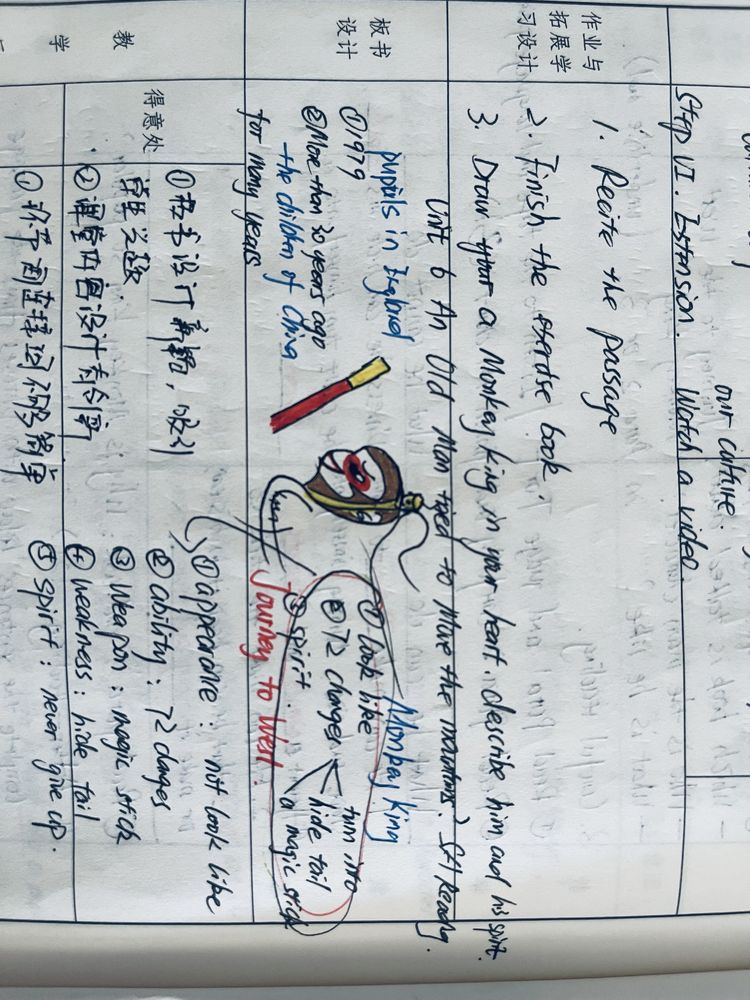 our culture.
Step VI. Extension. Watch a video.
作业与
拓展学
习设计
1. Recite the passage
2. Finish the exercise book.
3. Draw your a Monkey king in your heart. describe him and his spirit.
板书
设计
Unit 6 An Old Man tried to Move the mountains. Reading.
pupils in England
①1979
②More than 30 years ago
the children of China
for many years
Monkey King
①look like
②72 changes
turn into
hide tail
a magic stick
③spirit.
Journey to West.
教
学
得意处
①板书设计新颖，吸引
学生兴趣.
②课堂内容设计
①appearance: not look like
②ability: 72 changes
③Weapon: magic stick
④weakness: hide tail
⑤spirit: never give up.